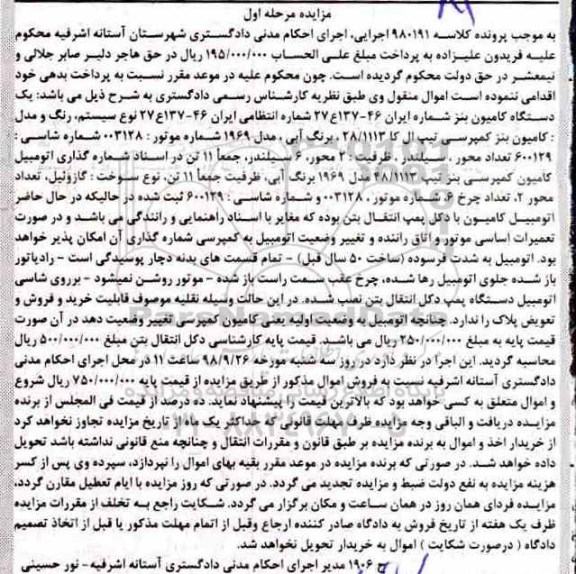 مزایده مرحله اول
به موجب پرونده کلاسه ۹۸۰۱۹۱ اجرایی، اجرای احکام مدنی دادگستری شهرستان آستانه اشرفیه محکوم
علیه فریدون علیزاده به پرداخت مبلغ علی الحساب ۱۹۵/۰۰۰/۰۰۰ ریال در حق هاجر دلیر صابر جلالی و
نیمعشر در حق دولت محکوم گردیده است. چون محکوم علیه در موعد مقرر نسبت به پرداخت بدهی
اقدامی ننموده است اموال منقول وی طبق نظریه کارشناس رسمی دادگستری به شرح ذیل می باشد: یک
دستگاه کامیون بنز شماره ایران ۴۶-۱۳۷ع۲۷ شماره انتظامی ایران ۴۶-۱۳۷ع۲۷ نوع سیستم، رنگ و مدل
: کامیون بنز کمپرسی تیپ ال کا ۲۸/۱۱۱۳، برنگ آبی ، مدل ۱۹۶۹ شماره موتور : ۰۰۳۱۲۸ شماره شاسی :
۶۰۰۱۲۹ تعداد محور ، سیلندر ، ظرفیت : ۲ محور، ۶ سیلندر، جمعاً ۱۱ تن در اسناد شماره گذاری اتومبیل
کامیون کمپرسی بنز تیپ ۴۸/۱۱۱۳ مدل ۱۹۶۹ برنگ آبی، ظرفیت جمعاً ۱۱ تن، نوع سوخت : گازوئیل، تعداد
محور ۲، تعداد چرخ ۶، شماره موتور ۰۰۳۱۲۸ و شماره شاسی : ۶۰۰۱۲۹ ثبت شده در حالیکه در حال حاضر
اتومبیل کامیون با دکل پمپ انتقال بتن بوده که مغایر با اسناد راهنمایی و رانندگی می باشد و در صورت
تعمیرات اساسی موتور و اتاق راننده و تغییر وضعیت اتومبیل به کمپرسی شماره گذاری آن امکان پذیر خواهد
بود. اتومبیل به شدت فرسوده (ساخت ۵۰ سال قبل) - تمام قسمت های بدنه دچار پوسیدگی است - رادیاتور
باز شده جلوی اتومبیل رها شده، چرخ عقب سمت راست باز شده - موتور روشن نمیشود - برروی شاسی
اتومبیل دستگاه پمپ دکل انتقال بتن نصب شده. در این حالت وسیله نقلیه موصوف قابلیت خرید و فروش و
تعویض پلاک را ندارد. چنانچه اتومبیل به وضعیت اولیه یعنی کامیون کمپرسی تغییر وضعیت دهد در آن صورت
قیمت پایه به مبلغ ۲۵۰/۰۰۰/۰۰۰ ریال می باشد. قیمت پایه کارشناسی دکل انتقال بتن مبلغ ۵۰۰/۰۰۰/۰۰۰ ریال
محاسبه گردید. این اجرا در نظر دارد در روز سه شنبه مورخه ۹۸/۹/۲۶ ساعت ۱۱ در محل اجرای احکام مدنی
دادگستری آستانه اشرفیه نسبت به فروش اموال مذکور از طریق مزایده از قیمت پایه ۷۵۰/۰۰۰/۰۰۰ ریال شروع
و اموال متعلق به کسی خواهد بود که بالاترین قیمت را پیشنهاد نماید. ده درصد از قیمت فی المجلس از برنده
مزایده دریافت و الباقی وجه مزایده ظرف مهلت قانونی که حداکثر یک ماه از تاریخ مزایده تجاوز نخواهد کرد
از خریدار اخذ و اموال به برنده مزایده بر طبق قانون و مقررات انتقال و چنانچه منع قانونی نداشته باشد تحویل
داده خواهد شد. در صورتی که برنده مزایده در موعد مقرر بقیه بهای اموال را نپردازد، سپرده وی پس از کسر
هزینه مزایده به نفع دولت ضبط و مزایده تجدید می گردد. در صورتی که روز مزایده با ایام تعطیل مقارن گردد،
مزایده فردای همان روز در همان ساعت و مکان برگزار می گردد. شکایت راجع به تخلف از مقررات مزایده
ظرف یک هفته از تاریخ فروش به دادگاه صادر کننده ارجاع وقبل از اتمام مهلت مذکور یا قبل از اتخاذ تصمیم
دادگاه ( درصورت شکایت ) اموال به خریدار تحویل نخواهد شد.
ح ۱۹۰۶ مدیر اجرای احکام مدنی دادگستری آستانه اشرفیه- نور حسینی
ParsNamadData